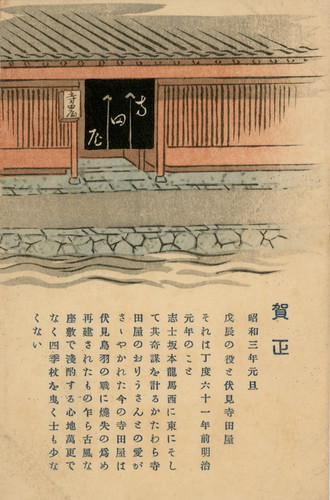 寺田屋
寺田屋
賀正
昭和三年元旦
戊辰の役と伏見寺田屋
それは丁度六十一年前明治
元年のこと
志士坂本龍馬西に東にそし
て其奇謀を計るかたわら寺
田屋のおりうさんとの愛が
さゝやかれた今の寺田屋は
伏見鳥羽の戰に燒失の爲め
再建されたもの乍ら古風な
座敷で淺酌する心地萬更で
なく四季杖を曳く士も少な
くない